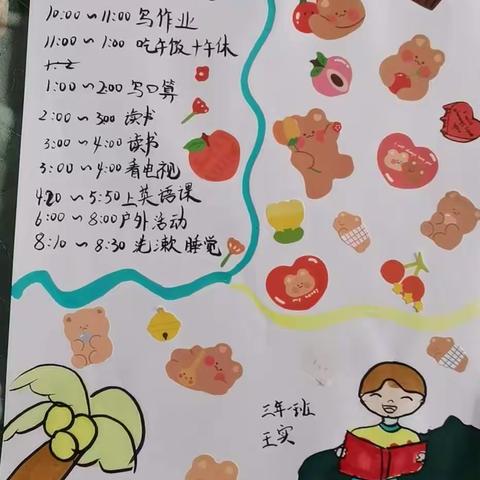 10:00~11:00 写作业
11:00~1:00 吃午饭+午休
1:00~2:00 写口算
2:00~300 读书
3:00~4:00 读书
3:00~4:00 看电视
4:20~5:50 上英语课
6:00~8:00 户外活动
8:10~8:30 洗漱 睡觉
三年一班
王实